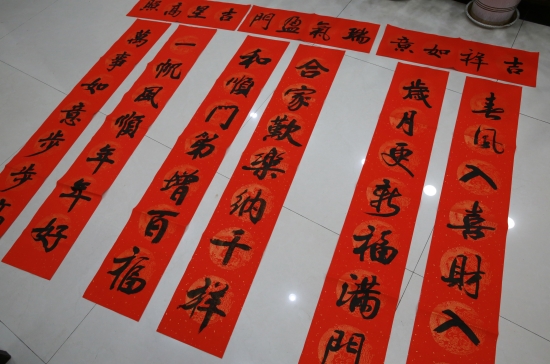 吉祥如意
瑞氣盈門
吉星高照
春風入喜財入
歲月更新福滿門
合家歡樂納千祥
和順门第增百福
一帆風順年年好
萬事如意步步